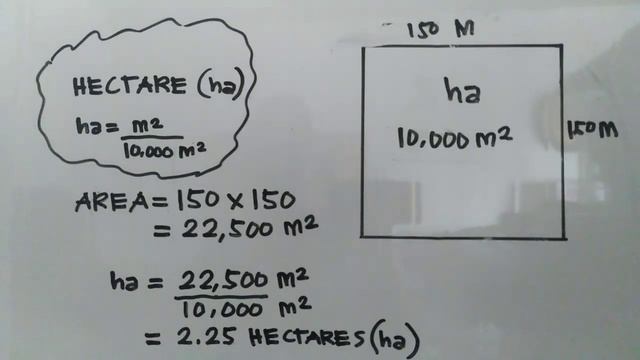 HECTARE (ha)
ha = m2
10,000 m2
AREA = 150 x 150
= 22,500 m2
ha = 22,500 m2
10,000 m2
= 2.25 HECTARES (ha)
150 M
ha
10,000 m2
150 M